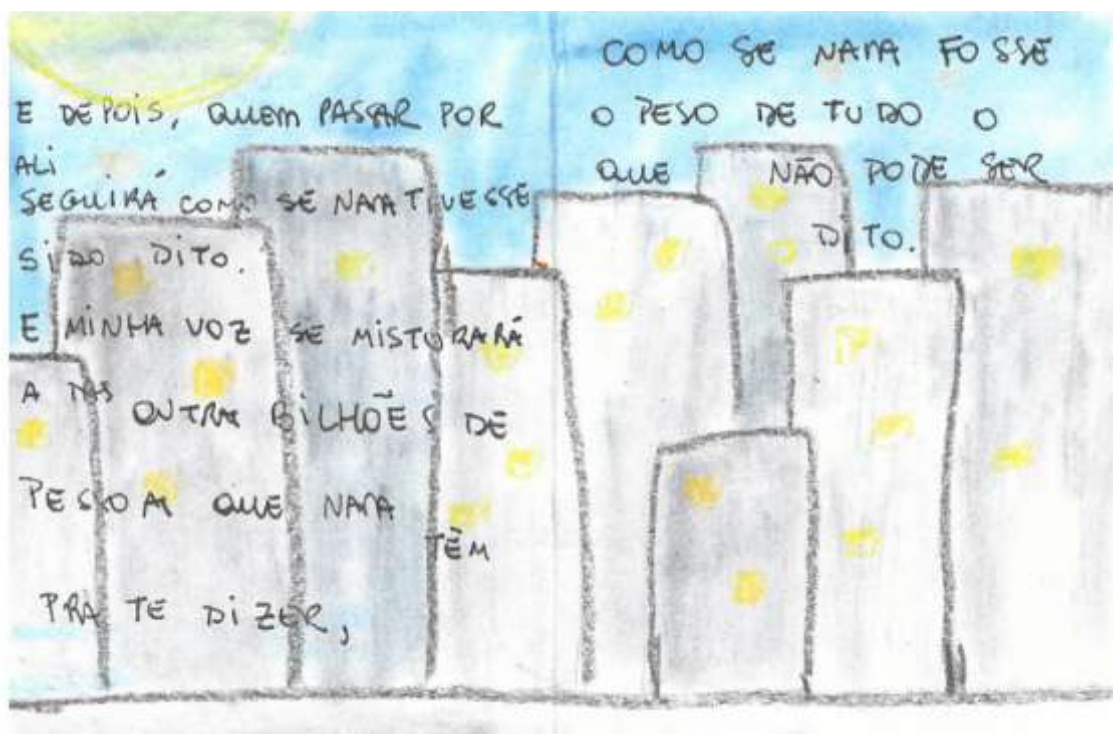 E DEPOIS, QUEM PASSAR POR
ALI
SEGUIRÁ COMO SE NADA TIVESSE
SIDO DITO.
E MINHA VOZ SE MISTURARÁ
A DAS
OUTRA BILHÕES DE
PESSOA QUE NADA
TÊM
PRA TE DIZER,
COMO SE NADA FOSSE
O PESO DE TUDO O
QUE NÃO PODE SER
DITO.